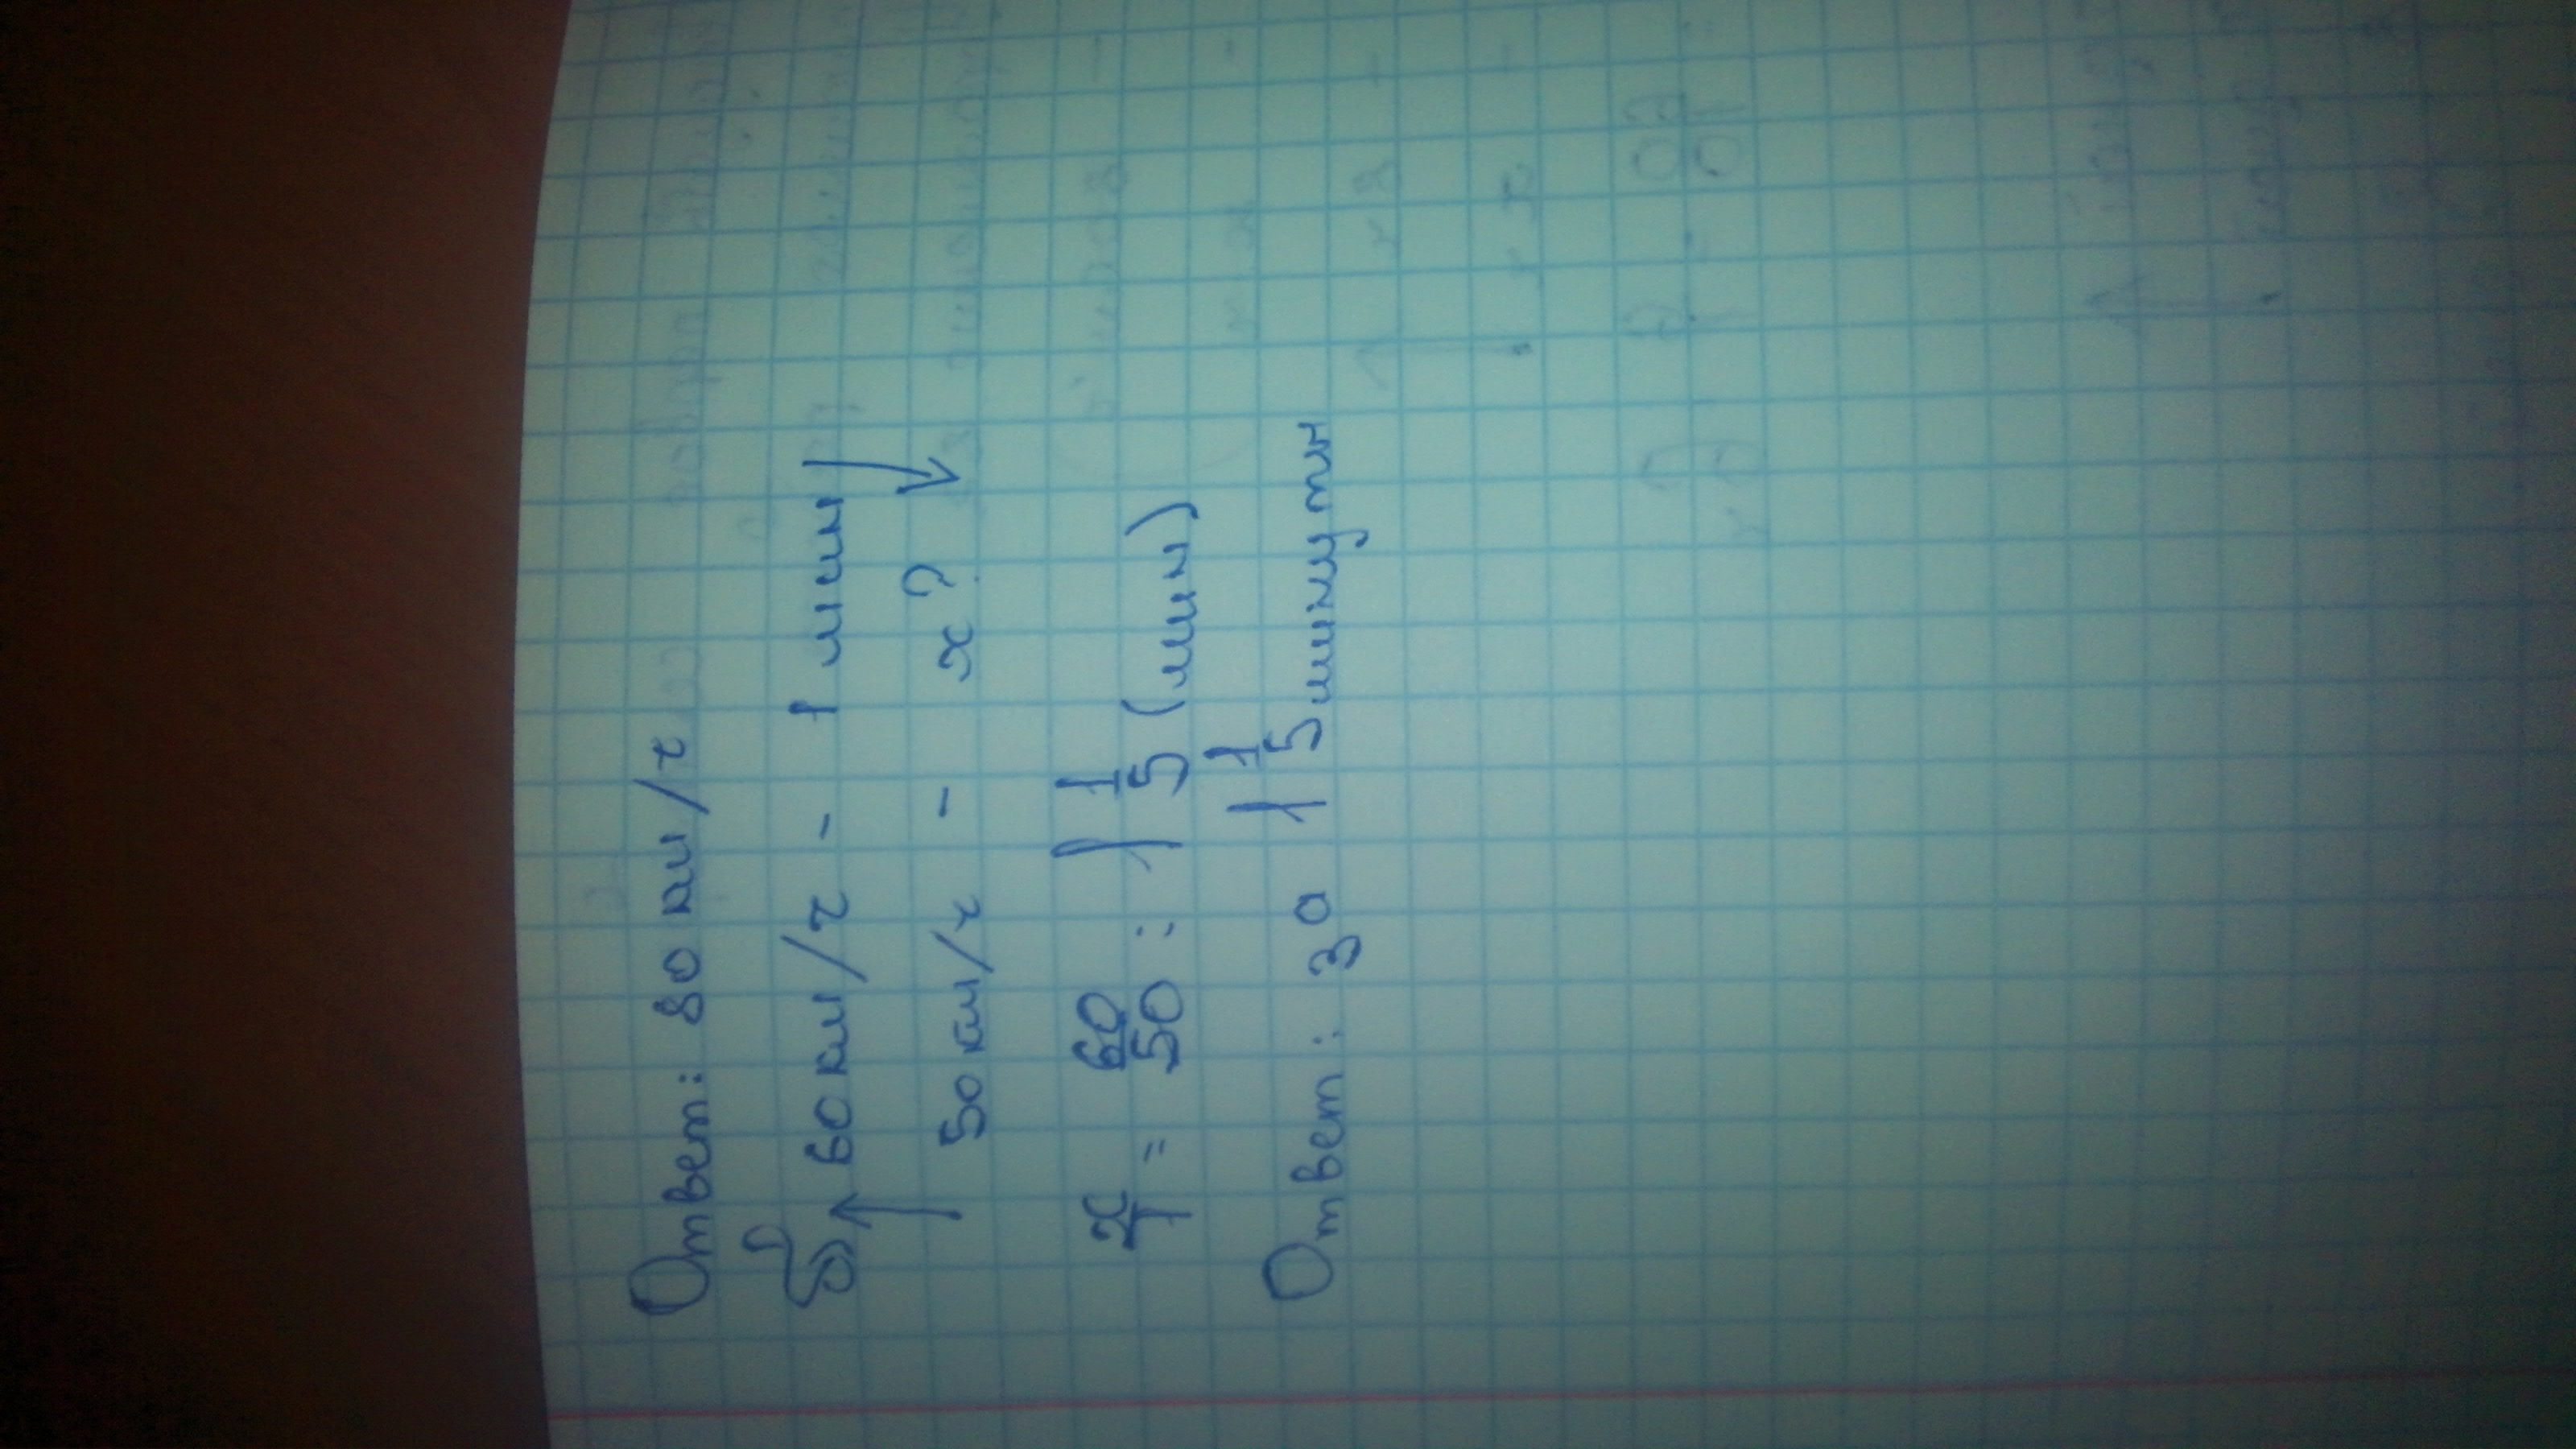 Ответ: 80 км/ч
б) 60 км/ч - 1 мин
50 км/ч - x?
x/1 = 60/50 : 1 1/5 (мин)
Ответ: за 1 1/5 минуты